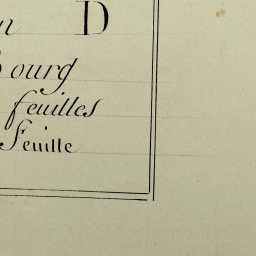 n D
ourg
feuilles
Feuille